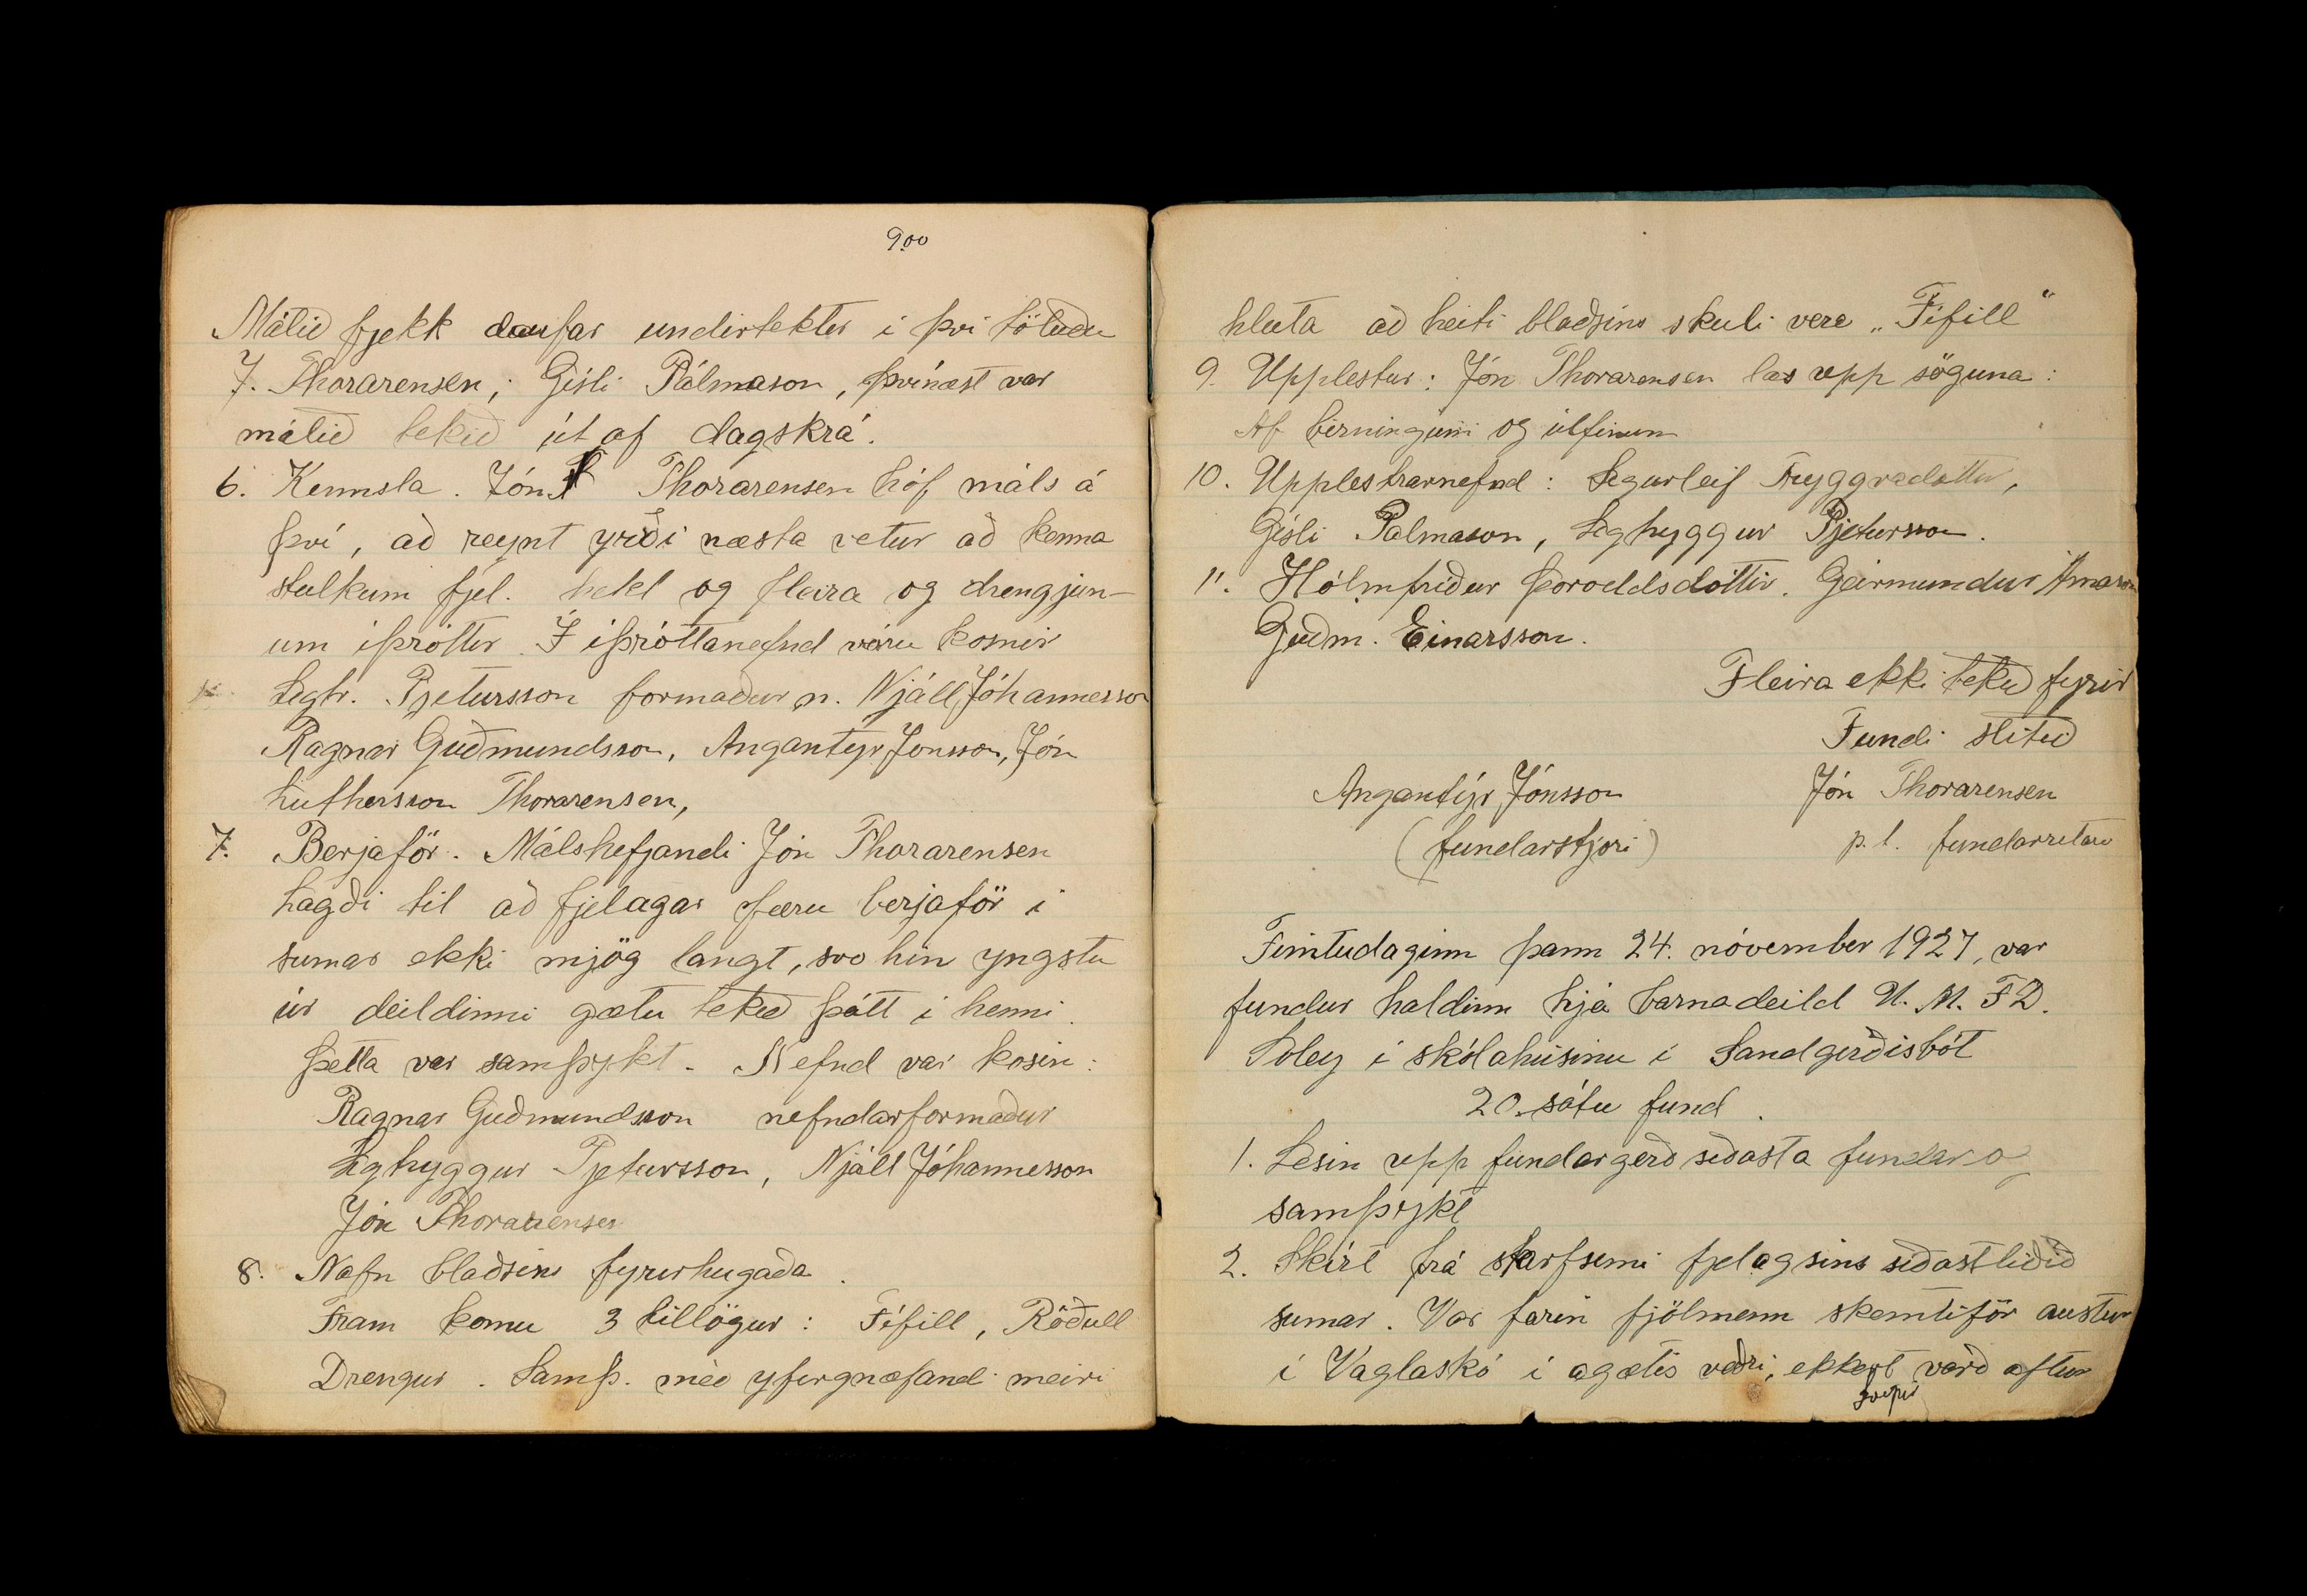 900
Málið fjekk daufar undirtektir i þvi töluðu
J. Thorarensen; Gísli Pálmason, þvínæst var
málið tekið út af dagskrá.
6. Kennsla. Jón Thorarensen hóf máls á
því, að reynt yrði næsta vetur að kenna
stulkum fjel. hekl og fleira og drengjun-
um iþróttir. Í iþróttanefnd voru kosnir
Sigtr. Pjetursson formaður n. Njáll Jóhannesson
Ragnar Guðmundsson, Angantyr Jonsson, Jón
Luthersson Thorarensen,
7. Berjaför. Málshefjandi Jón Thorarensen
Lagði til að fjelagar færu berjaför i
sumar ekki mjög langt, svo hin yngstu
úr deildinni gætu tekið þátt i henni.
Þetta var samþykt. Nefnd var kosin:
Ragnar Guðmundsson nefndarformaður
Sigtryggur Pjetursson, Njáll Jóhannesson
Jón Thorarensen
8. Nafn blaðsins fyrirhugaða.
Fram komu 3 tillögur: Fífill, Röðull
Drengur. Samþ. með yfirgnæfandi meiri
hluta að heiti blaðsins skuli vera „Fífill“
9. Upplestur: Jón Thorarensen las upp söguna:
Af birninginum og úlfinum
10. Upplestrarnefnd: Sigurleif Tryggvadottir,
Gísli Palmason, Sigtryggur Pjetursson.
11. Hólmfríður Þoroddsdóttir. Geirmundur Árnason
Guðm. Einarsson.
Fleira ekki tekið fyrir
Fundi slitið
Angantýr Jónsson Jón Thorarensen
(fundarstjori) p.t. fundarritari
Fimtudaginn þann 24. nóvember 1927, var
fundur haldinn hjá barnadeild U. M. F. D.
Soley i skólahúsinu i Sandgerðisbót
20. sátu fund.
1. Lesin upp fundargerð siðasta fundar og
samþykt
2. Skírt frá starfsemi fjelagsins siðastliðið
sumar. Var farin fjölmenn skemtiför austur
í Vaglaskó i agætis veðri, ekkert varð aftur